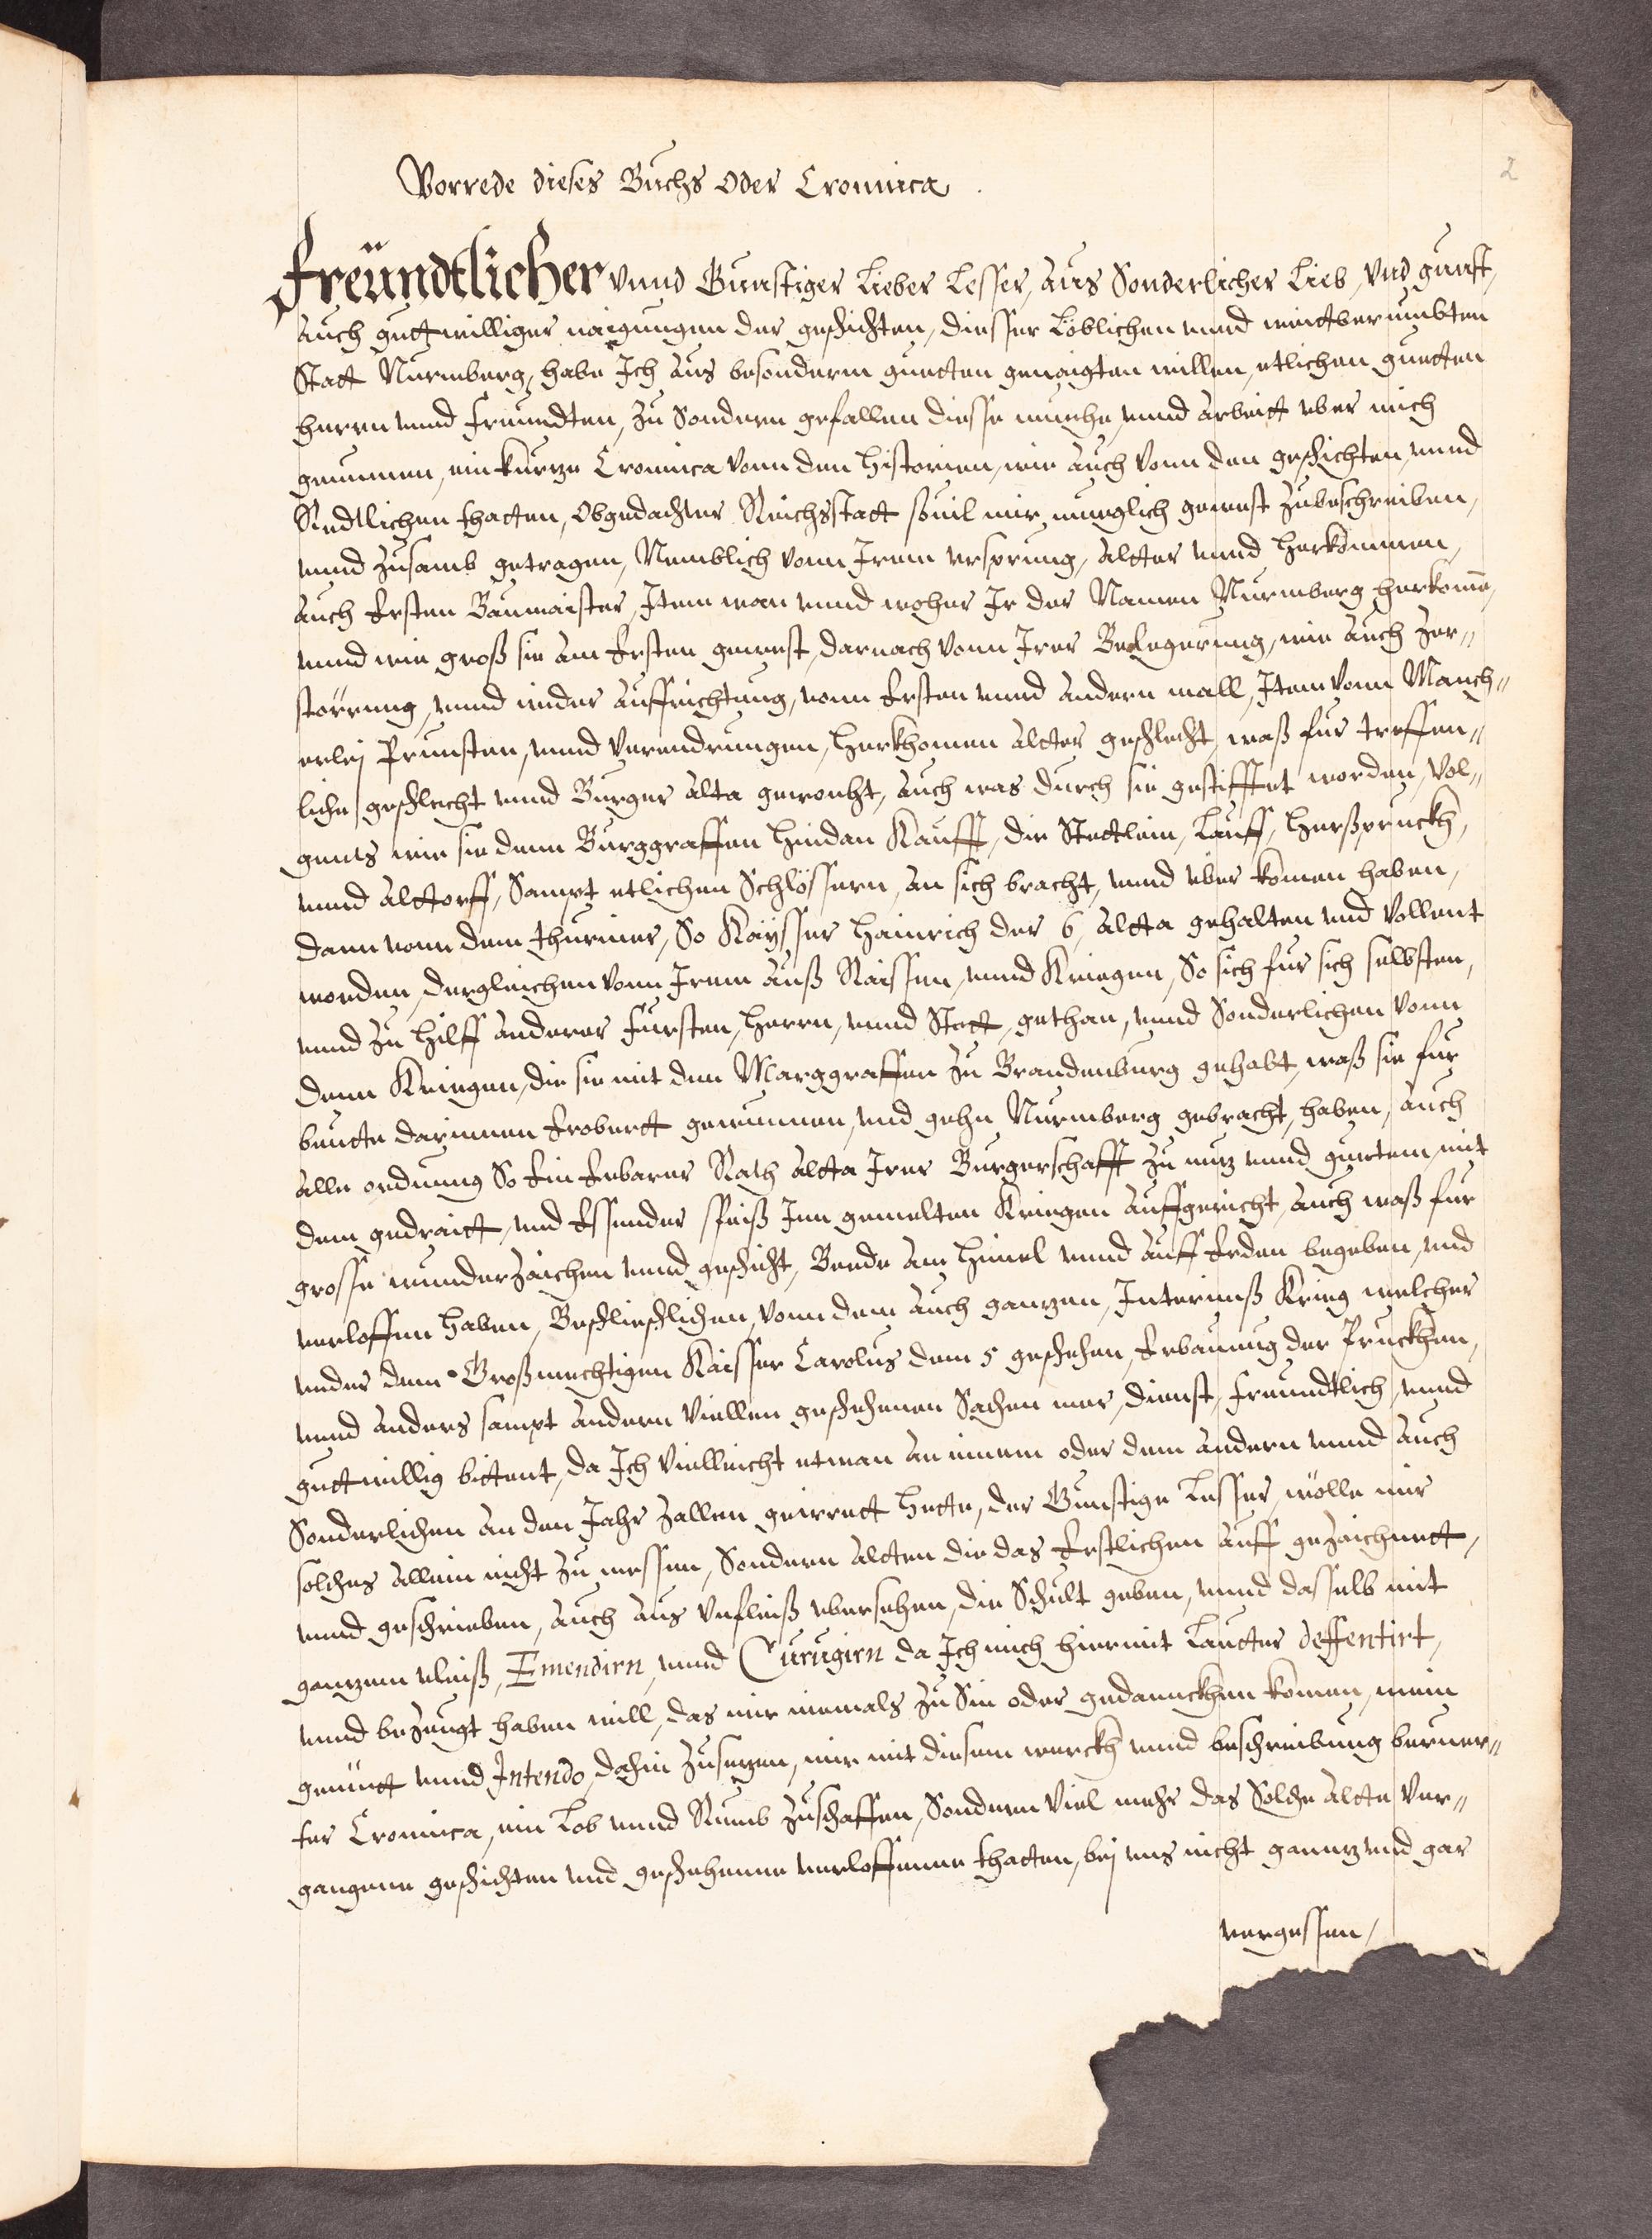 2
Vorrede dieses Buchs oder Cronnica.
Freündtlicher vnnd Gunstiger Lieber Lesser, Aus Sonderlicher Lieb, vnd gunst,
Auch guttwilliger naigungen der geschichten, diesser Löblichen vnnd weittberumbten
Statt Nurmberg, habe Ich Aus besonderm guetten genaigten willen, etlichen guetten
herrn vnnd Freundten, zu Sondern gefallen diesse muehe, vnnd arbeitt vber mich
genummen, ein kurtze Cronnica vonn den Historien, wie auch vonn den geschichten, vnnd
Redtlichen thatten, Obgedachter Reichsstatt souil mir muglich gewest zubeschreiben,
vnnd zusamb getragen, Nemblich vonn Irem vrsprung, altter vnnd Herkommen,
Auch Ersten Baumaister, Item wan vnnd woher Ir der Namen Nurmberg herkome,
vnnd wie groß sie am Ersten gewest, darnach vonn Irer Belegerung, wie auch Zer¬
störrung, vnnd wider Auffrichtung, vom Ersten vnnd Andern mall, Item vonn Manch¬
erlej Prunsten, vnnd Verendrungen, Herkhomen altter geschlecht, waß fur treffen¬
liche geschlecht vnnd Burger alta gewonht, Auch was durch sie gestifftet worden, Vol¬
gents wie sie denn Burggraffen hindan Kaufft, die Stettlein, Lauff, Herßpruckh,
vnnd Alttorff, Sampt etlichen Schlössern, an sich bracht, vnnd vber komen haben,
dann vonn dem thurnier, So Kaÿsser Hainrich der 6, Altta gehalten vnd vollent
worden, dergleichen vonn Irem auß Raissen, vnnd Kriegen, So sich fur sich selbsten,
vnnd zu hilff anderer Fursten, Herrn, vnnd Stett, gethan, vnnd Sonderlichen vonn
denn Kriegen, die sie mit dem Marggraffen zu Brandenburg gehabt, waß sie fur
beutte darinnen Erobertt gewunnen, vnd gehn Nurmberg gebracht, haben, auch
alle ordnung So Ein Erbarer Rath Altta Irer Burgerschafft zu nutz vnnd guettem, mit
dem gedraitt, vnd Essender speiß Inn gemelten Kriegen Auffgericht, Auch waß fur
grosse wunderzaichen vnnd geschicht, Beede am Himel vnnd auff Erden begeben, vnd
verloffen haben, Beschließlichen, vonn dem Auch gantzen, Interimß Krieg welcher
vnder dem Großmechtigen Kaisser Carolus dem 5 geschehen, Erbauung der Pruckhen,
vnnd anders sampt andern Viellen geschehenen Sachen mer, dienst, freundtlich, vnnd
guttwillig bittent, da Ich Vielleicht etwan an einem oder dem andern vnnd Auch
Sonderlichen an den Jahr zallen geirrett hette, der Gunstige Lesser, wölle mir
solches allein nicht zu messen, Sondern altten die das Erstlichen auff gezaichnett,
vnnd geschrieben, Auch aus vnfleiß vbersehen, die Schult geben, vnnd dasselb mit
gantzem vleiß, Emendirn, vnnd Curugirn da Ich mich hiermit Lautter deffentirt,
vnnd bezeugt haben will, das mir niemals zu Sin oder gedannckhen komen, mein
gemütt vnnd Intendo, dahin zusetzen, mir mit diesem werckh vnnd beschreibung berurr¬
ter Cronnica, ein Lob vnnd Rumb zuschaffen, Sondern Viel mehr das Solche Altte Ver¬
gangene geschichten vnd geschehenne verloffenne thatten, bej vns nicht ganntz vnd gar
vergessen,